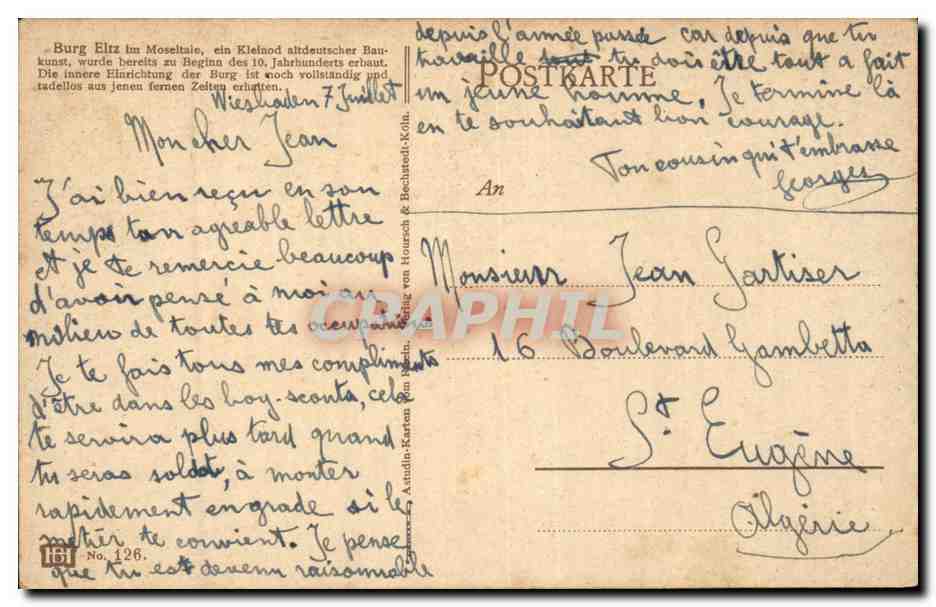 Burg Eltz im Moseltale, ein Kleinod altdeutscher Bau-
kunst, wurde bereits zu Beginn des 10. Jahrhunderts erbaut.
Die innere Einrichtung der Burg ist noch vollständig und
tadellos aus jenen fernen Zeiten erhalten.
Wiesbaden 7 Juillet
Mon cher Jean
J'ai bien reçu en son
temps ton agréable lettre
et je te remercie beaucoup
d'avoir pensé à moi au
milieu de toutes tes occupations
Je te fais tous mes compliments
d'être dans les boy-scouts, cela
te servira plus tard quand
tu seras soldat, à monter
rapidement en grade si le
métier te convient. Je pense
que tu es devenu raisonnable
HB
No. 126.
Astudin-Karten vom Rhein. Verlag von Hoursch & Bechstedt-Köln.
depuis l'année passée car depuis que tu
travaille tout tu dois être tout a fait
POSTKARTE
un jeune homme. Je termine là
en te souhaitant bon courage.
Ton cousin qui t'embrasse
Georges
An
Monsieur Jean Gartiser
16 Boulevard Gambetta
St. Eugène
Algérie
CPAPHIL